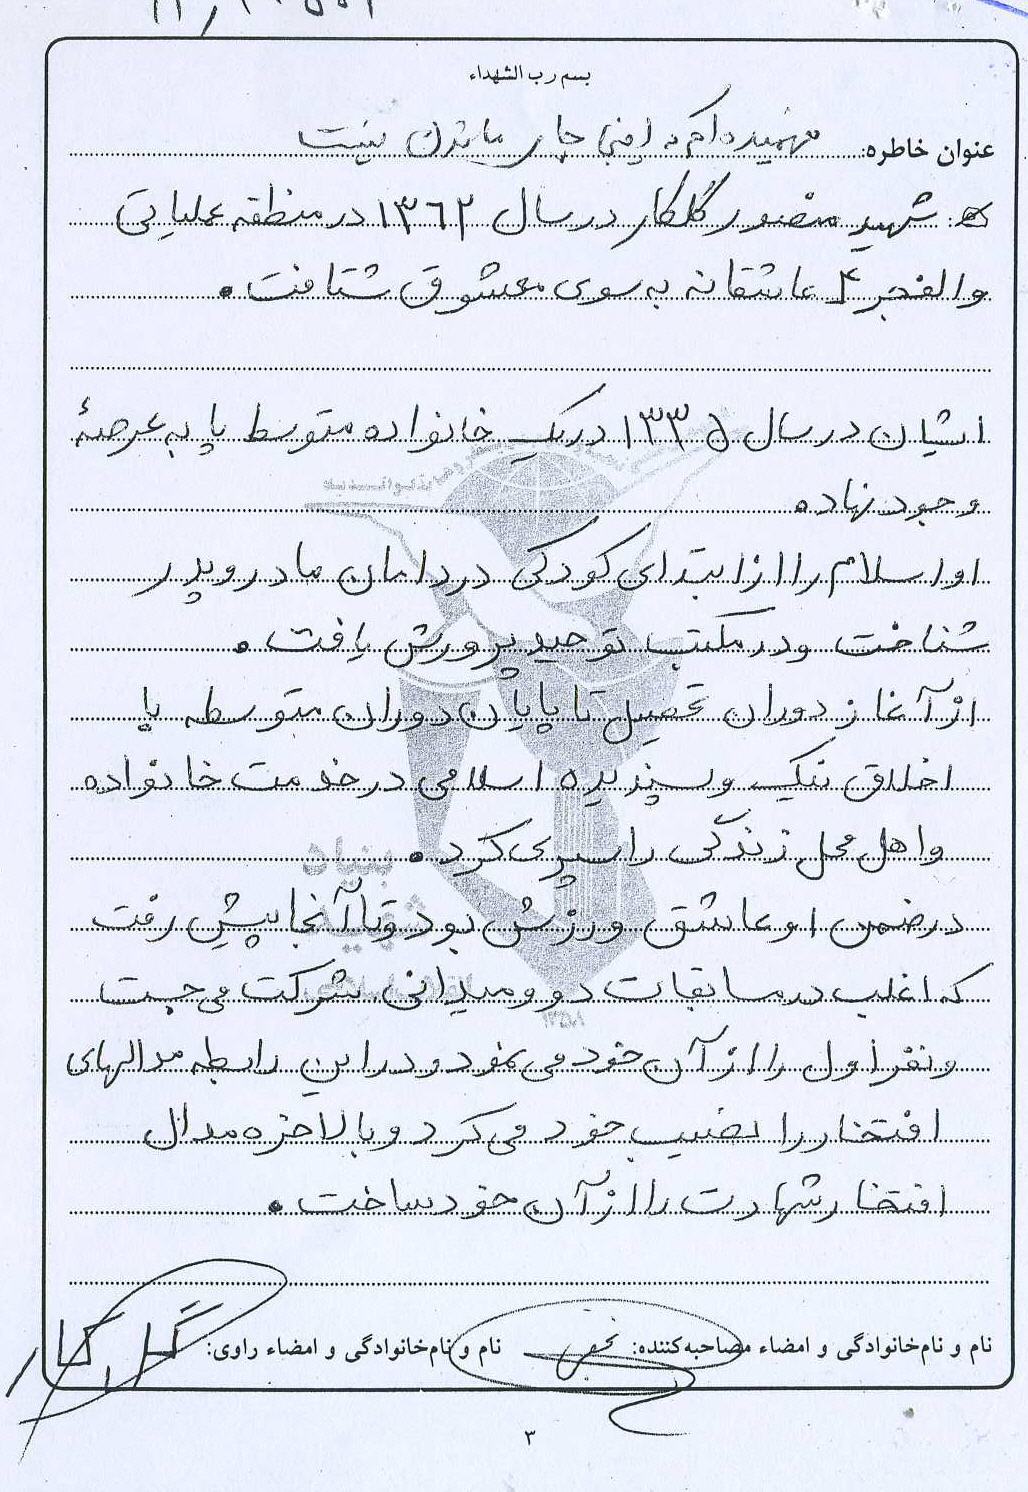 بسم رب الشهداء
عنوان خاطره: فهمیده‌ام که اینجا جای ماندن نیست
شهید منصور گلکار در سال ۱۳۶۲ در منطقه عملیاتی
والفجر ۴ عاشقانه به سوی معشوق شتافت.
ایشان در سال ۱۳۳۵ در یک خانواده متوسط پا به عرصهٔ
وجود نهاده
او اسلام را از ابتدای کودکی در دامان مادر و پدر
شناخت و در مکتب توحید پرورش یافت.
از آغاز دوران تحصیل تا پایان دوران متوسطه با
اخلاق نیک و پسندیده اسلامی در خدمت خانواده
و اهل محل زندگی را سپری کرد.
در ضمن او عاشق ورزش بود و تا آنجا پیش رفت
که اغلب در مسابقات دو و میدانی شرکت می جست
و نفر اول را از آن خود می نمود و در این رابطه مدالهای
افتخار را نصیب خود می کرد و بالاخره مدال
افتخار شهادت را از آن خود ساخت.
بنیاد
شهید
انقلاب اسلامی
۱۳۵۸
نام و نام‌خانوادگی و امضاء مصاحبه‌کننده: نجفی نام و نام‌خانوادگی و امضاء راوی: گلکار
۳